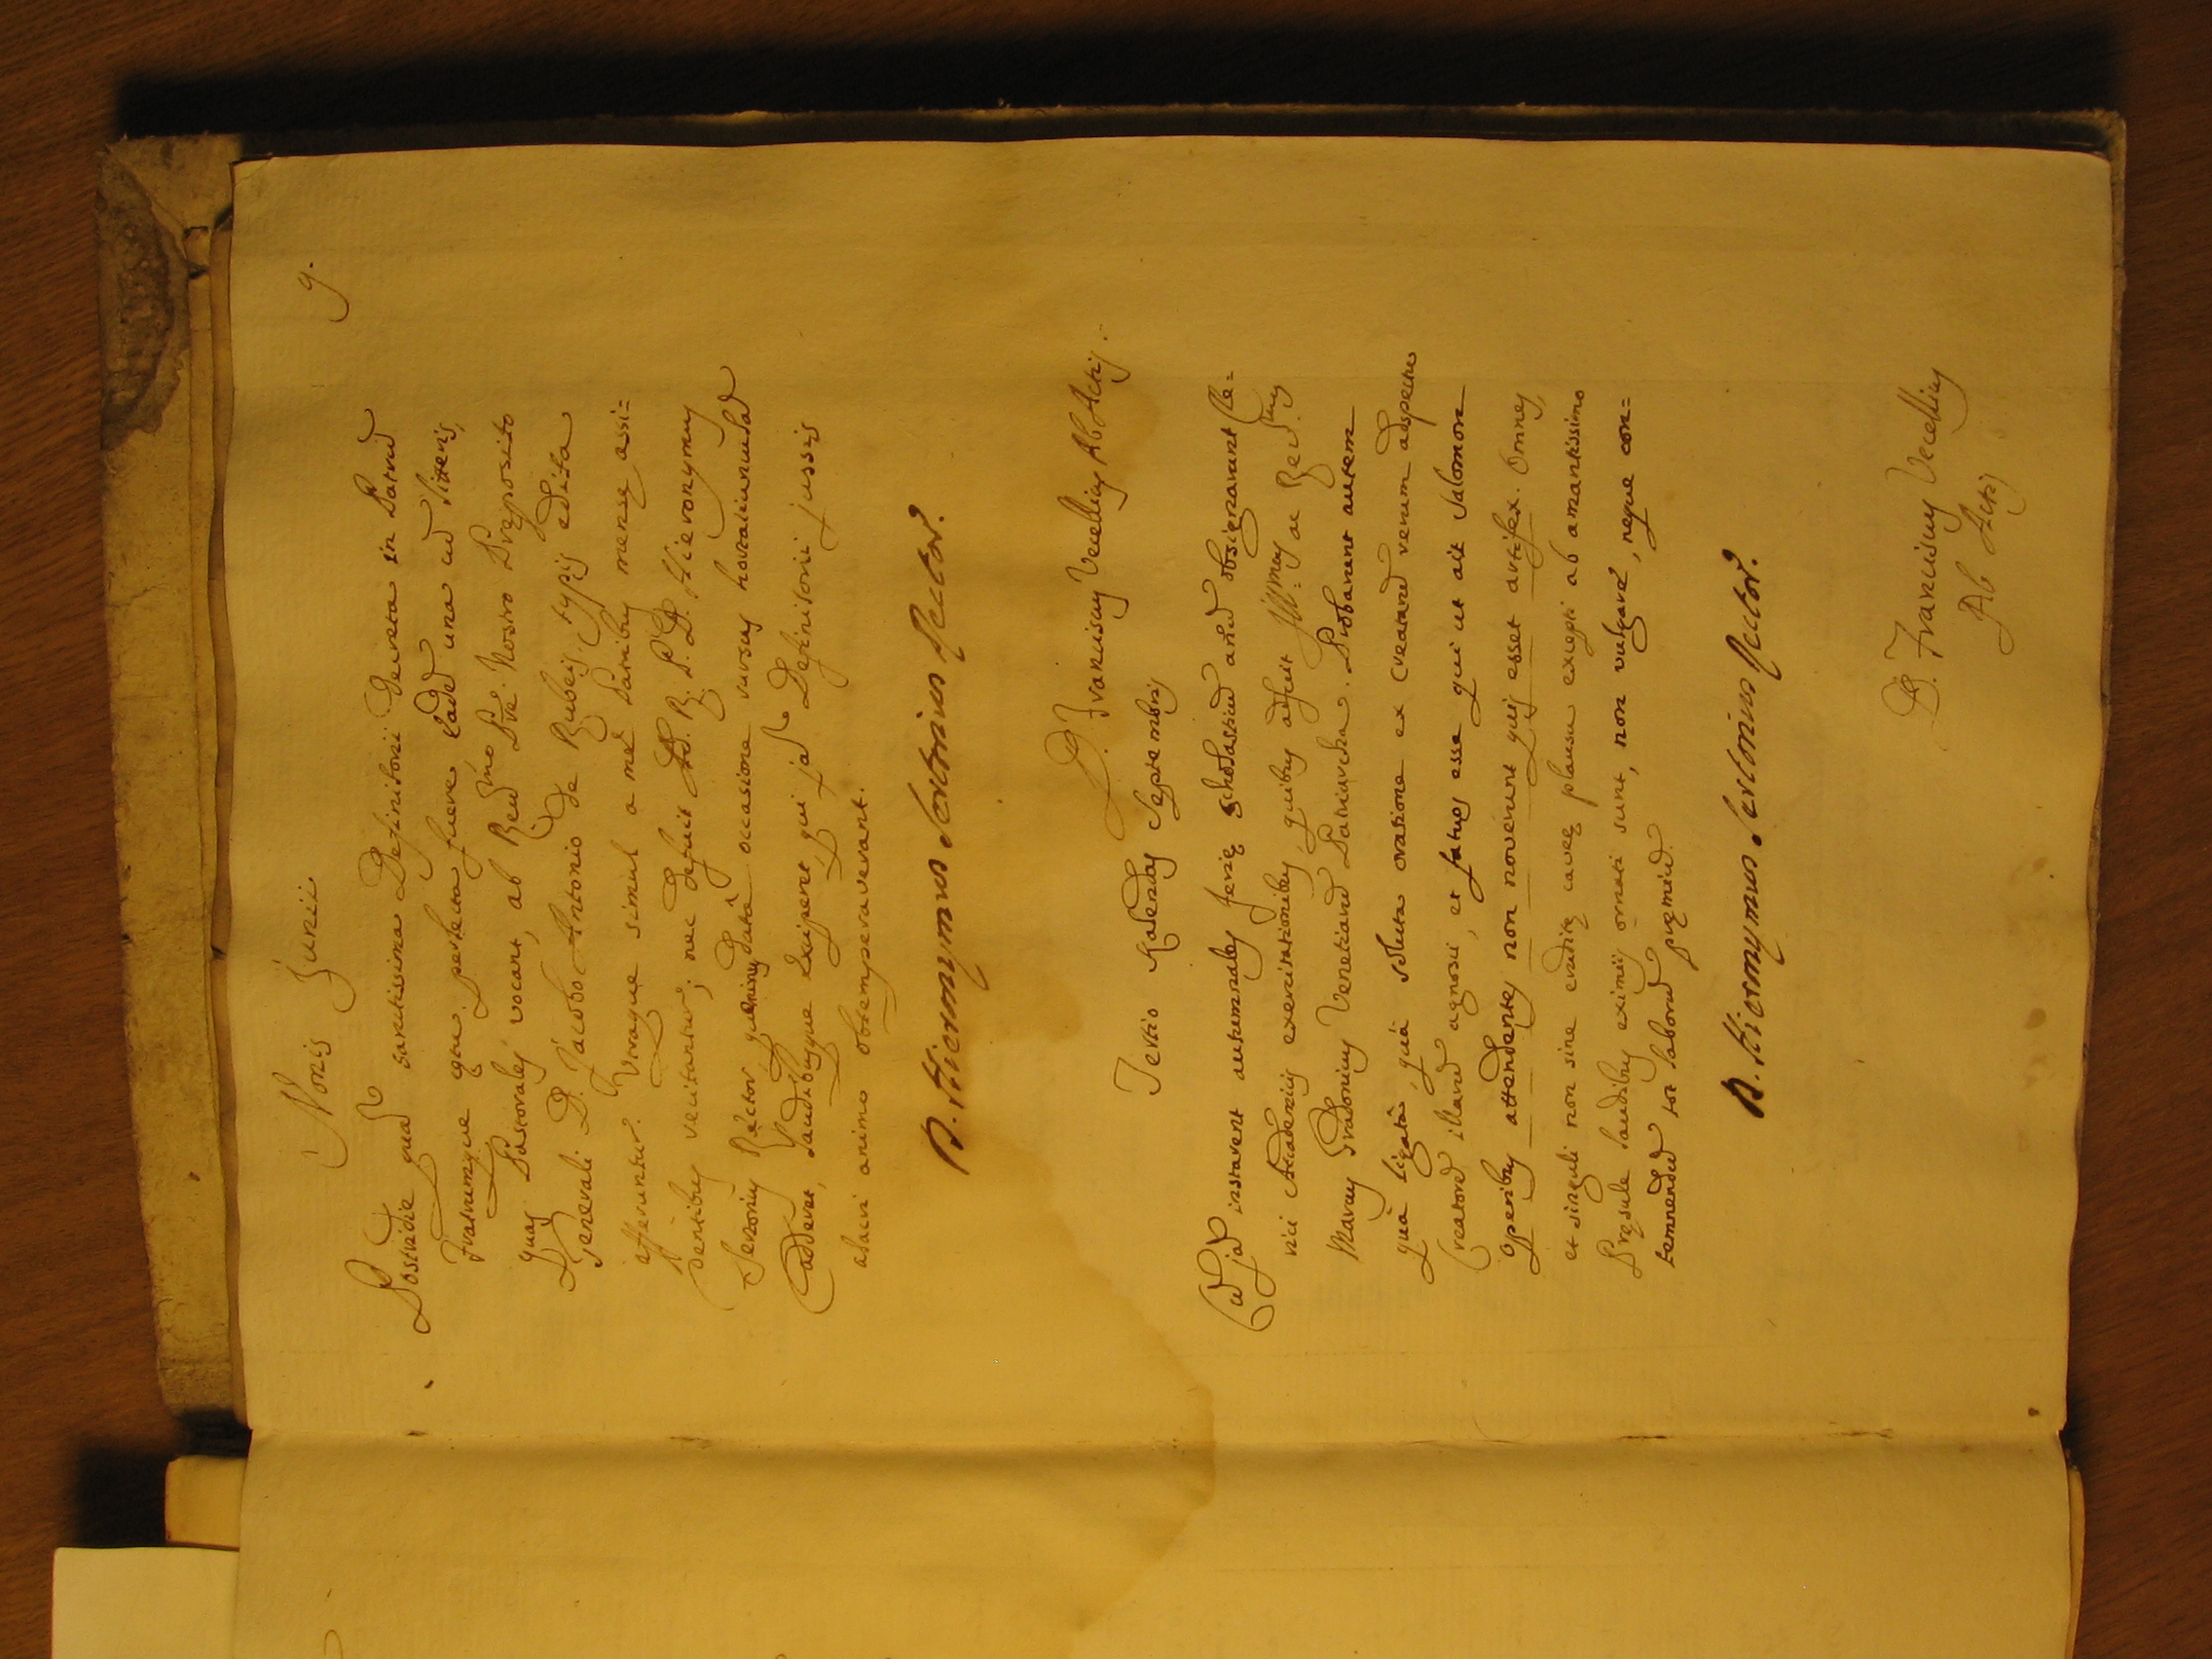 9.
Nonis Junii
Postridie quã sanctissima Definitorii Decreta in Patrũ
Fratrumque gem perlecta fuere eadẽ una cũ litteris,
quas Pastorales vocant, ab Revd.mo Pre. Nostro Preposito
Generali D. Jacobo Antonio de Rubeis typis edita
afferuntur. Utraque simul a me Patribus mense assi=
dentibus recitantur; nec defuit Ad. R. P. D. Hieronymus
Sertorius Rector, quenimus data occasione rursus hortatiunculã
adderet, Laudibusque exciperet, qui jã Definitorii jussis
alacri animo obtemperaverant.
D. Hieronymus Sertorius Rector.
D. Franciscus Vecellius Ab Actis.
Tertio Kalendas Septembris
Cũ jã instarent autumnales ferię scholasticũ annũ obsignarunt Cle=
rici Academicis exercitationibus, quibus adfuit Ill.mus ac Rev.mus
Marcus Gradonicus Venetiarũ Patriarcha. Probarunt autem
quà ligatâ, quà soluta oratione ex Creatarũ rerum adspectu
Creatorẽ illarũ agnosci, et fatuos esse qui ut ait Salomon
operibus attendentes non noverunt quis esset artifex. Omnes,
et singuli non sine eruditę caveę plausu excepti ab amantissimo
Pręsule laudibus eximiis ornati sunt, non vulgare, neque con=
temnendũ tot laborũ pręmiũ.
D. Hieronymus Sertorius Rector.
D. Franciscus Vecellius
Ab Actis